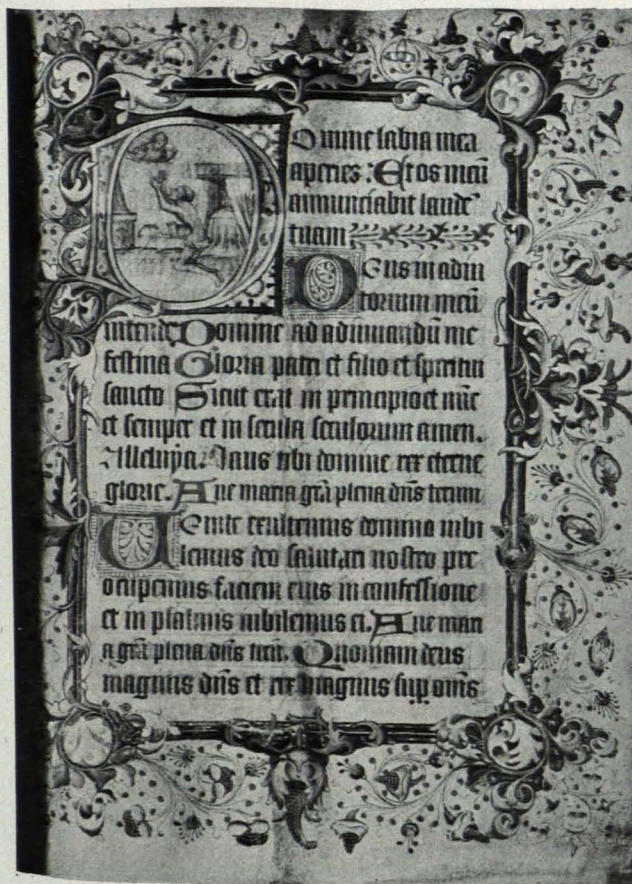 Domine labia mea
aperies : Et os meū
annunciabit laudē
tuam
Deus in adiu
torium meū
intende Domine ad adiuuandū me
festina Gloria patri et filio et spiritui
sancto Sicut erat in principio et nūc
et semper et in secula seculorum amen.
Alleluya. Laus tibi domine rex eterne
glorie. Aue maria grā plena dn̄s tecum
Uenite exultemus domino iubi
lemus deo salutari nostro pre
ocupemus faciem eius in confessione
et in psalmis iubilemus ei. Aue mari
a grā plena dn̄s tecū. Quoniam deus
magnus dn̄s et rex magnus sup omīs